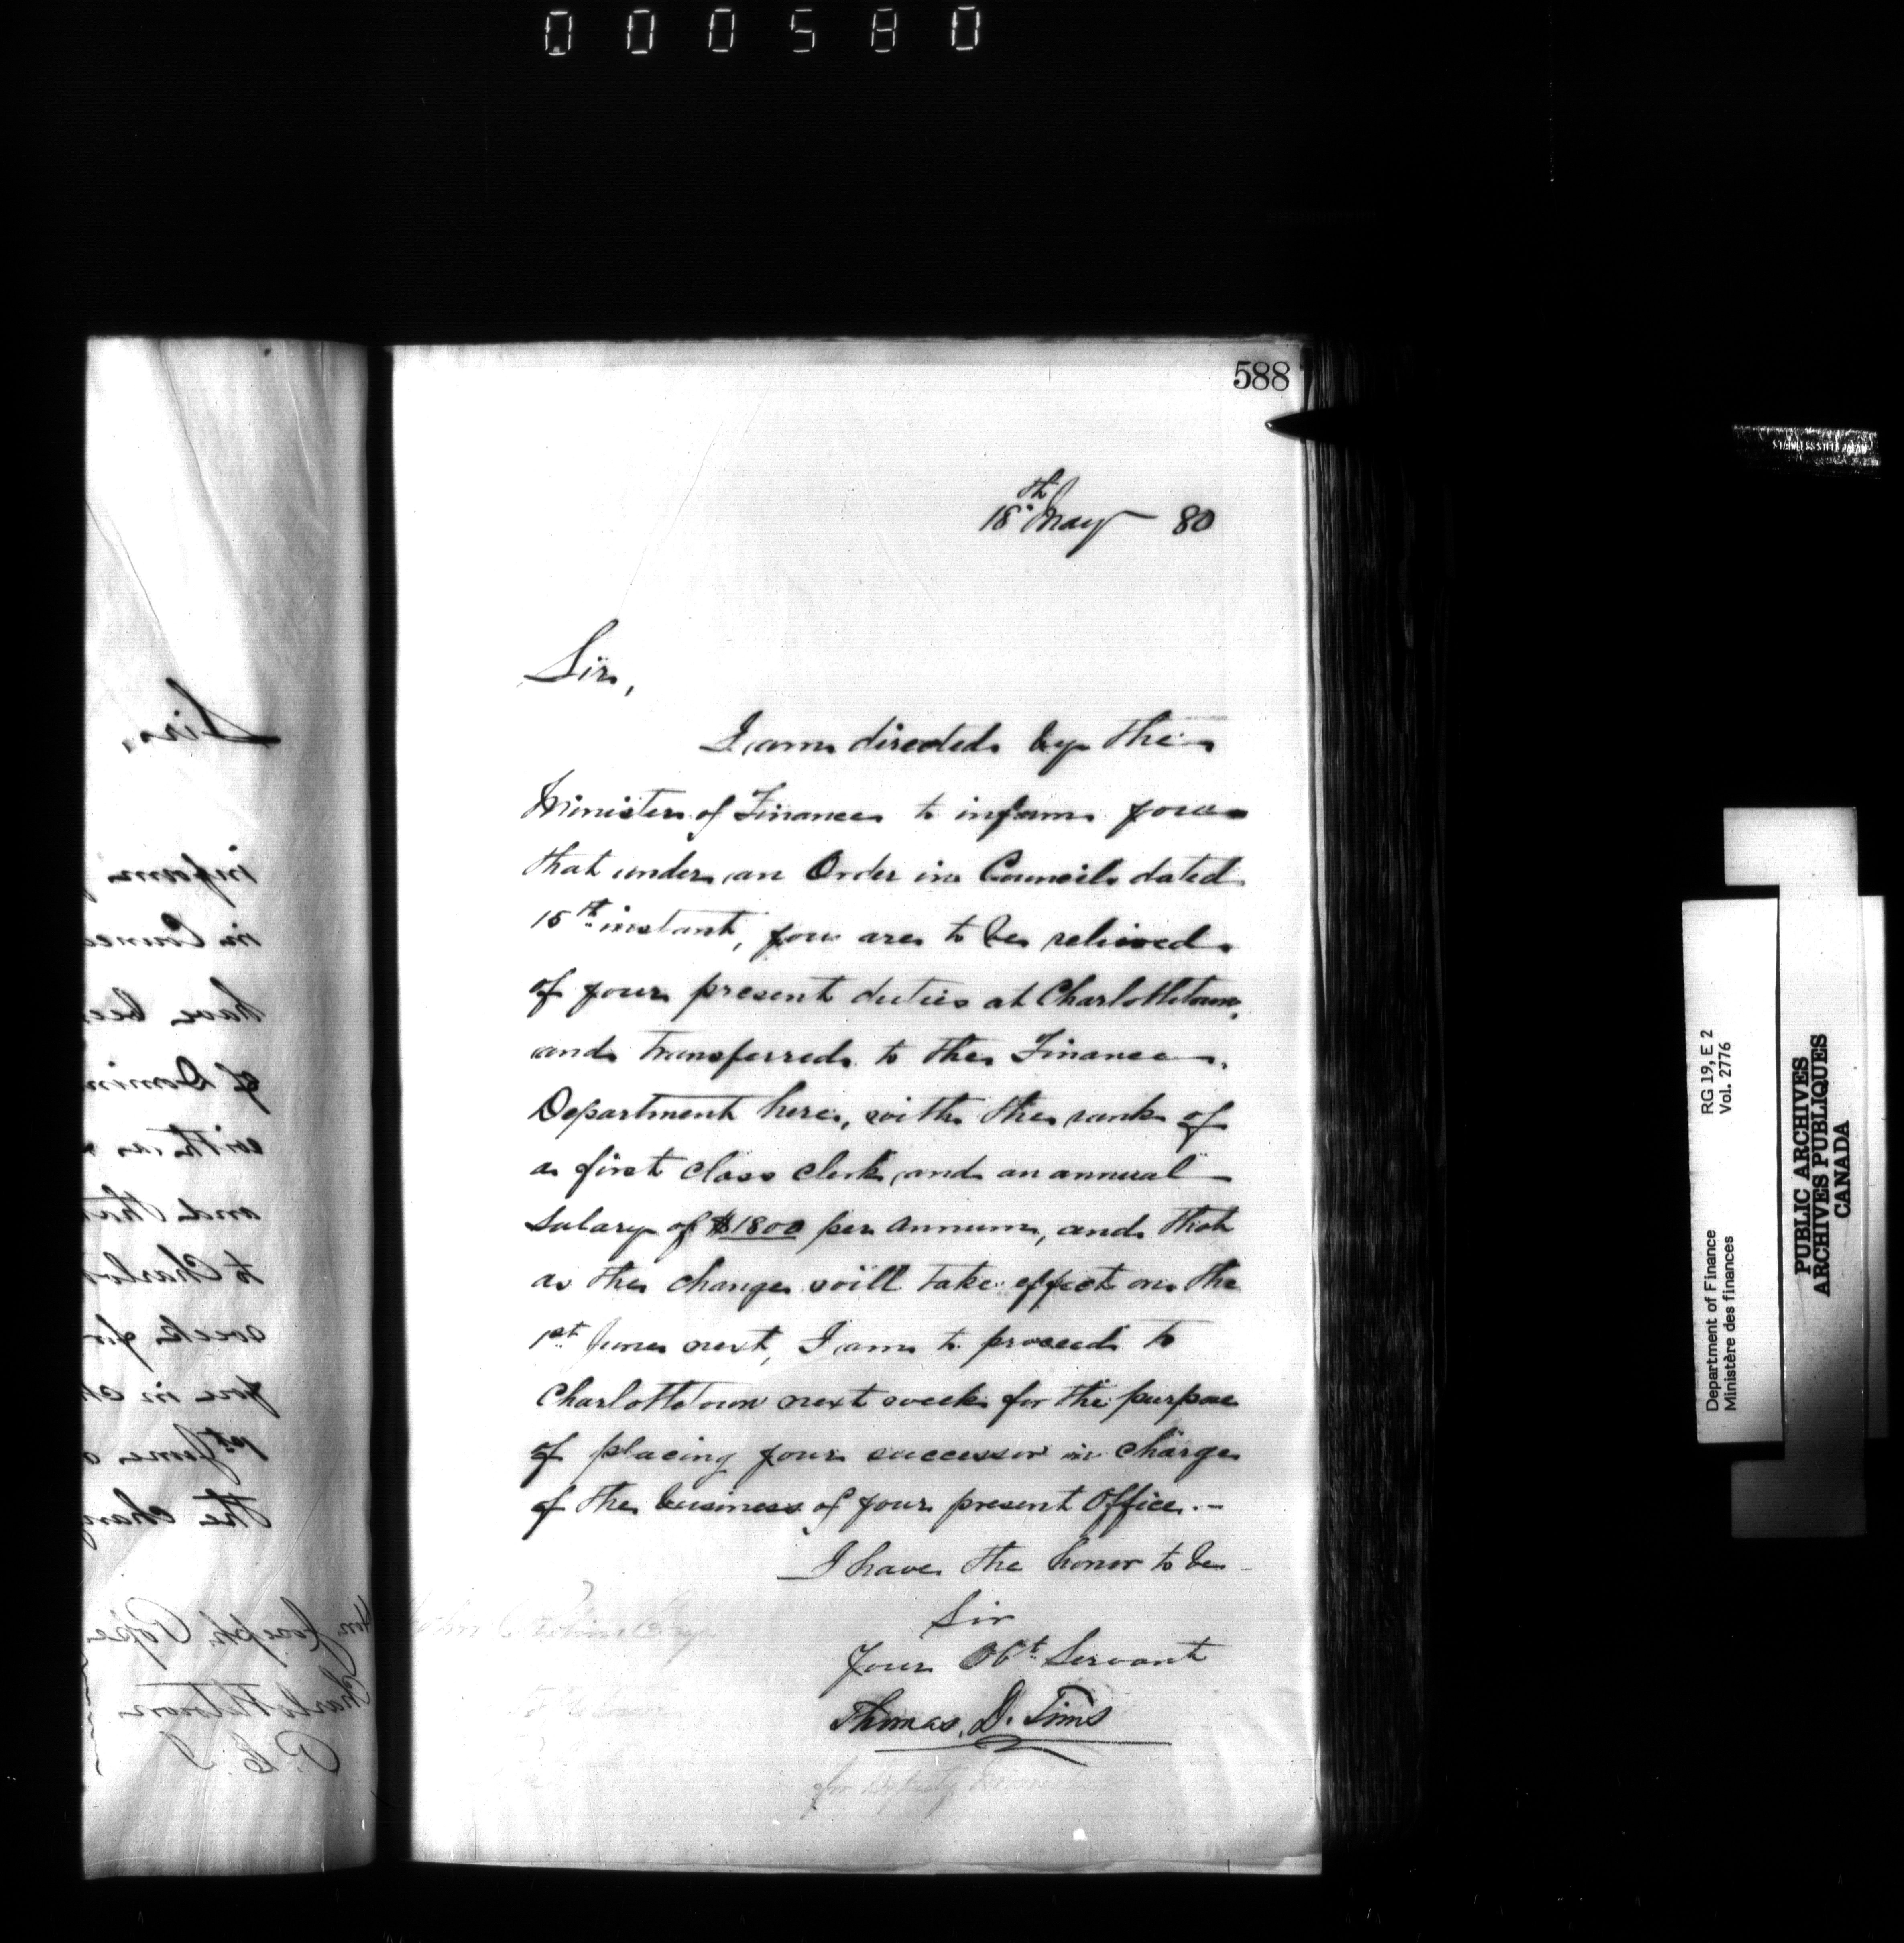 000580
588
18th May 80
Sir,
I am directed by the
Minister of Finance to inform you
that under an Order in Council dated
15th instant, you are to be relieved
of your present duties at Charlottetown,
and transferred to the Finance
Department here, with the rank of
a first class clerk, and an annual
salary of $1800 per annum, and that
as the change will take effect on the
1st June next, I am to proceed to
Charlottetown next week for the purpose
of placing your successor in charge
of the business of your present Office.-
I have the honor to be
Sir
Your Obt. Servant
Thomas. D. Tims
for Deputy Minister
Sir,
inform
in Counc
have bee
of Domin
with a
and that
to Charlot
week for
you in ch
1st June
the chang
Hon Joseph Pope
Charlottetown
P. E. I
Department of Finance RG 19, E 2
Ministère des finances Vol. 2776
PUBLIC ARCHIVES
ARCHIVES PUBLIQUES
CANADA